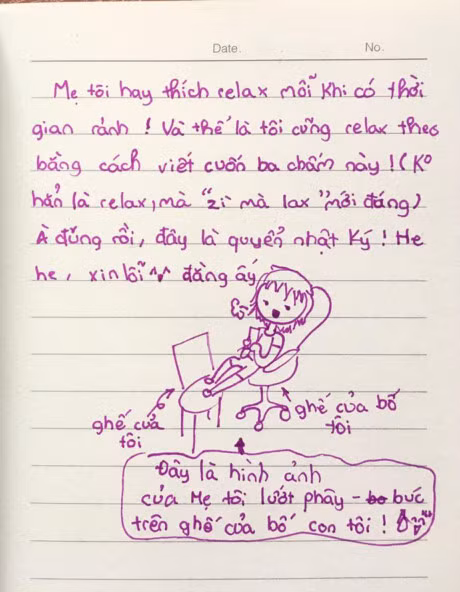 Date. No.
Mẹ tôi hay thích relax mỗi khi có thời
gian rảnh ! Và thế là tôi cũng relax theo
bằng cách viết cuốn ba chấm này ! (Ko
hẳn là relax, mà "zi mà lax" mới đáng)
À đúng rồi, đây là quyển nhật ký ! He
he, xin lỗi ^^ đằng ấy
ghế của
tôi
ghế của bố
tôi
Đây là hình ảnh
của Mẹ tôi lướt phây - búc
trên ghế của bố con tôi !